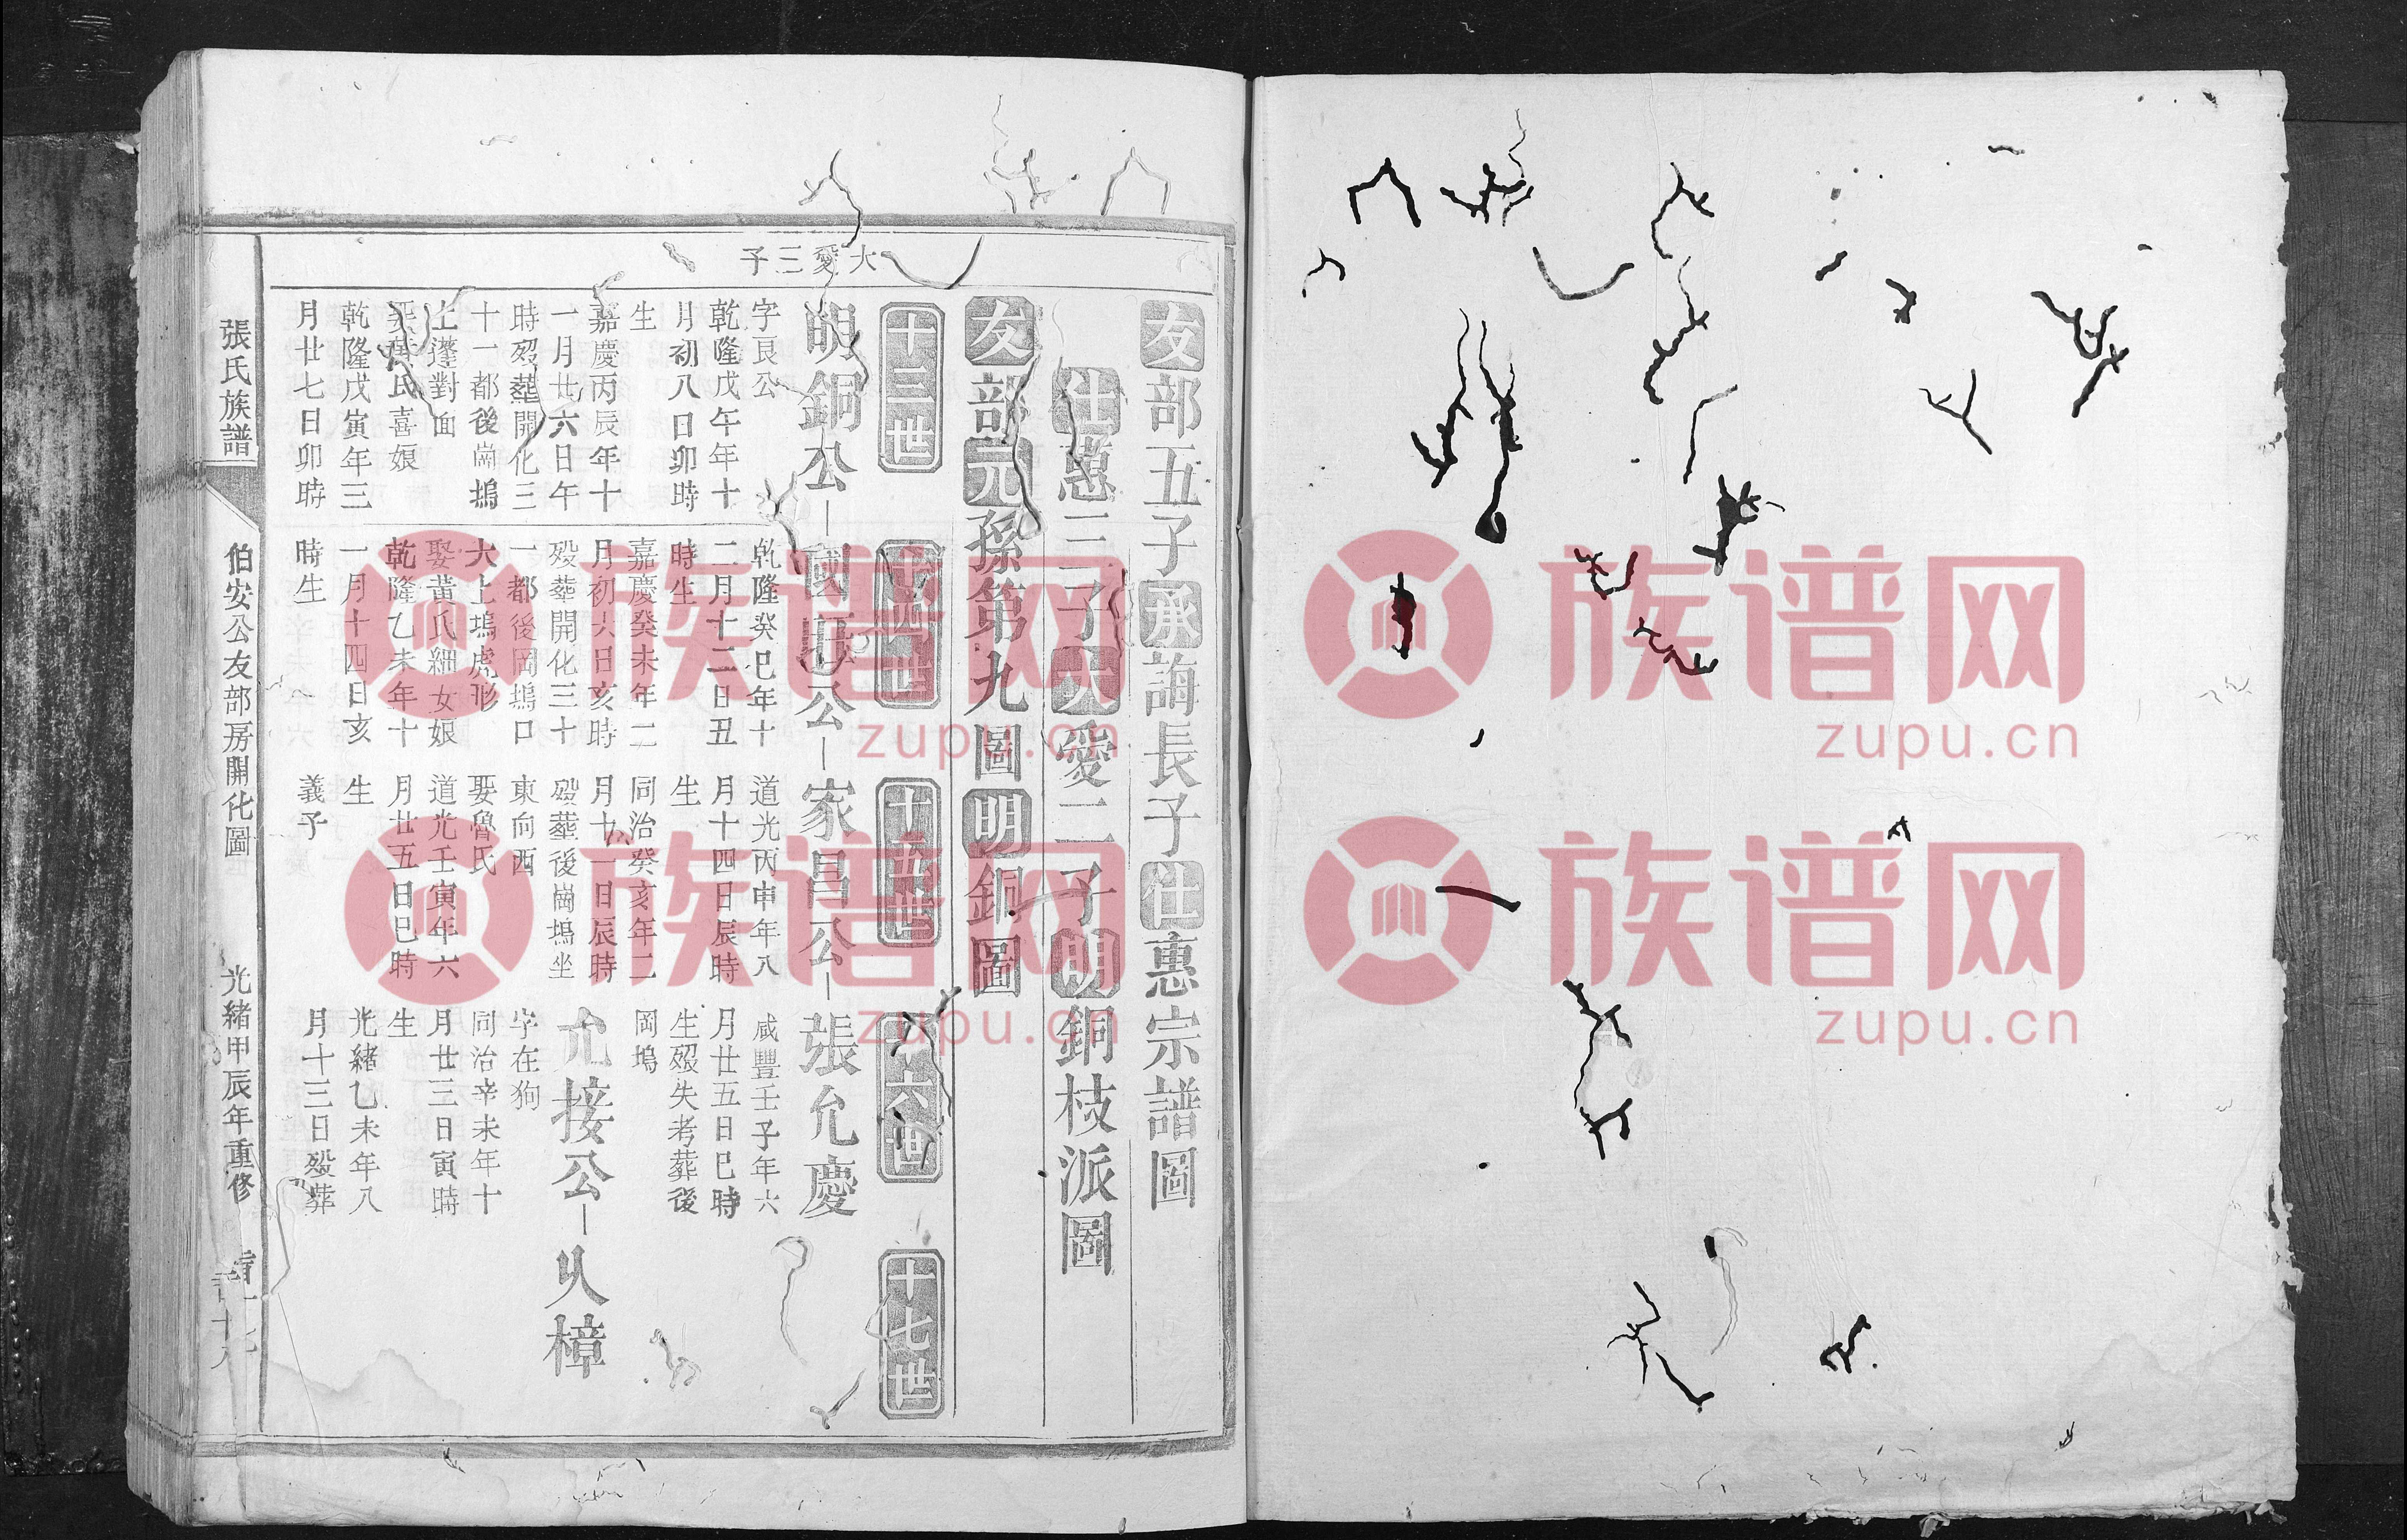 大愛三子
友部五子承誨長子仕惠宗譜圖
仕惠三子大愛二子明銅枝派圖
友部元孫第九圖明銅圖
十三世
十四世
十五世
十六世
十七世
明銅公
字艮公
乾隆戊午年十
月初八日卯時
生
嘉慶丙辰年十
一月廿六日午
時歿葬開化三
十一都後崗塢
上蓬對面
娶葉氏喜娘
乾隆戊寅年三
月廿七日卯時
國旺公
乾隆癸巳年十
二月十二日丑
時生
嘉慶癸未年二
月初六日亥時
歿葬開化三十
一都後岡塢口
大上塢虎形
娶黃氏細女娘
乾隆乙未年十
一月十四日亥
時生
家昌公
道光丙申年八
月十四日辰時
生
同治癸亥年二
月十一日辰時
歿葬後崗塢坐
東向西
娶魯氏
道光壬寅年六
月廿五日巳時
生
義子
張允慶
咸豐壬子年六
月廿五日巳時
生歿失考葬後
岡塢
允接公
字在狗
同治辛未年十
月廿三日寅時
生
光緒乙未年八
月十三日歿葬
火樟
張氏族譜
伯安公友部房開化圖
光緒甲辰年重修
族谱网
zupu.cn
族谱网
zupu.cn
族谱网
zupu.cn
族谱网
zupu.cn